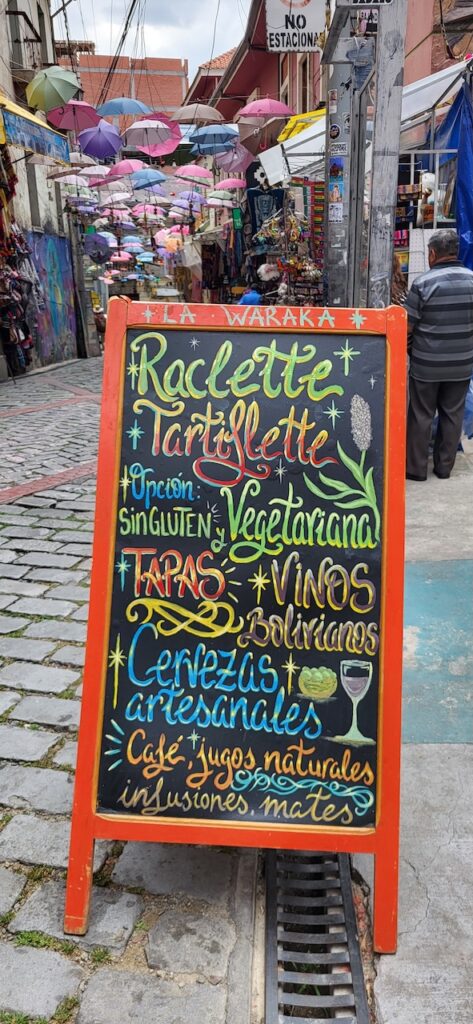 NO
ESTACIONAR
LA WARAKA
Raclette
Tartiflette
Opción:
SIN GLUTEN y Vegetariana
TAPAS
VINOS
Bolivianos
Cervezas
artesanales
Café, jugos naturales
infusiones, mates